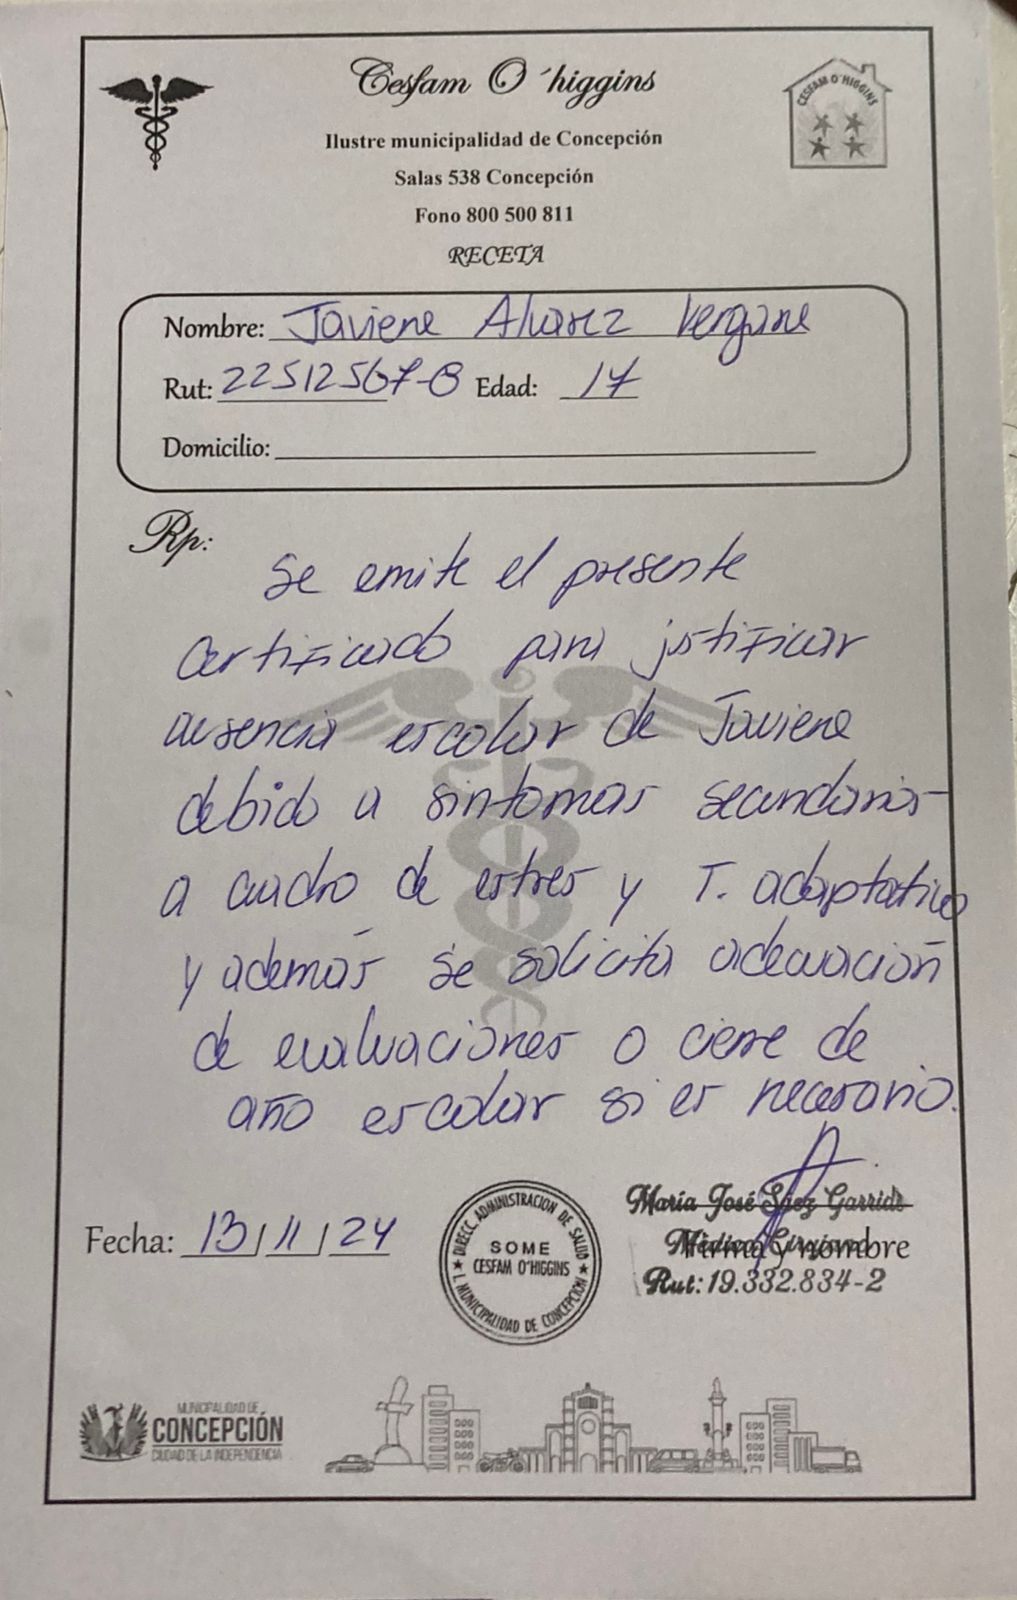 Cesfam O´higgins
CESFAM O´HIGGINS
Ilustre municipalidad de Concepción
Salas 538 Concepción
Fono 800 500 811
RECETA
Nombre: Javiera Alvarez Vergara
Rut: 22512567-8 Edad: 17
Domicilio:
Rp:
Se emite el presente
certificado para jstificar
ausencia escolar de Javiera
debido a sintomas secundarios
a cuadro de estres y T. adaptativo
y además se solicita adecuación
de evaluaciones o cierre de
año escolar si es necesario.
Fecha: 13/11/24
DIRECC. ADMINISTRACION DE SALUD
SOME
CESFAM O'HIGGINS
I. MUNICIPALIDAD DE CONCEPCIÓN
María José Sáez Garrido
Médico Cirujano
Firma y nombre
Rut: 19.332.834-2
MUNICIPALIDAD DE
CONCEPCIÓN
CIUDAD DE LA INDEPENDENCIA